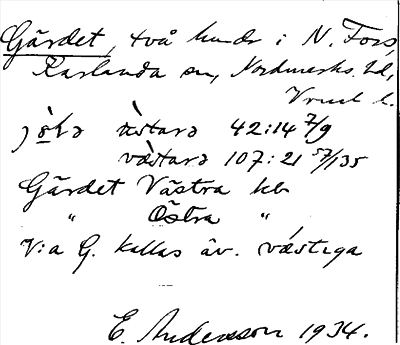 Gärdet, två hmdr i N. Fors,
Karlanda sn, Nordmarks hd,
Vrml l.
jǿ̀lə ǿ̀stərə 42:14 7/9
væ̀stərə 107:21 57/135
Gärdet Västra hb
" Östra "
V:a G. kallas äv. væ̀stiga
E. Andersson 1934.